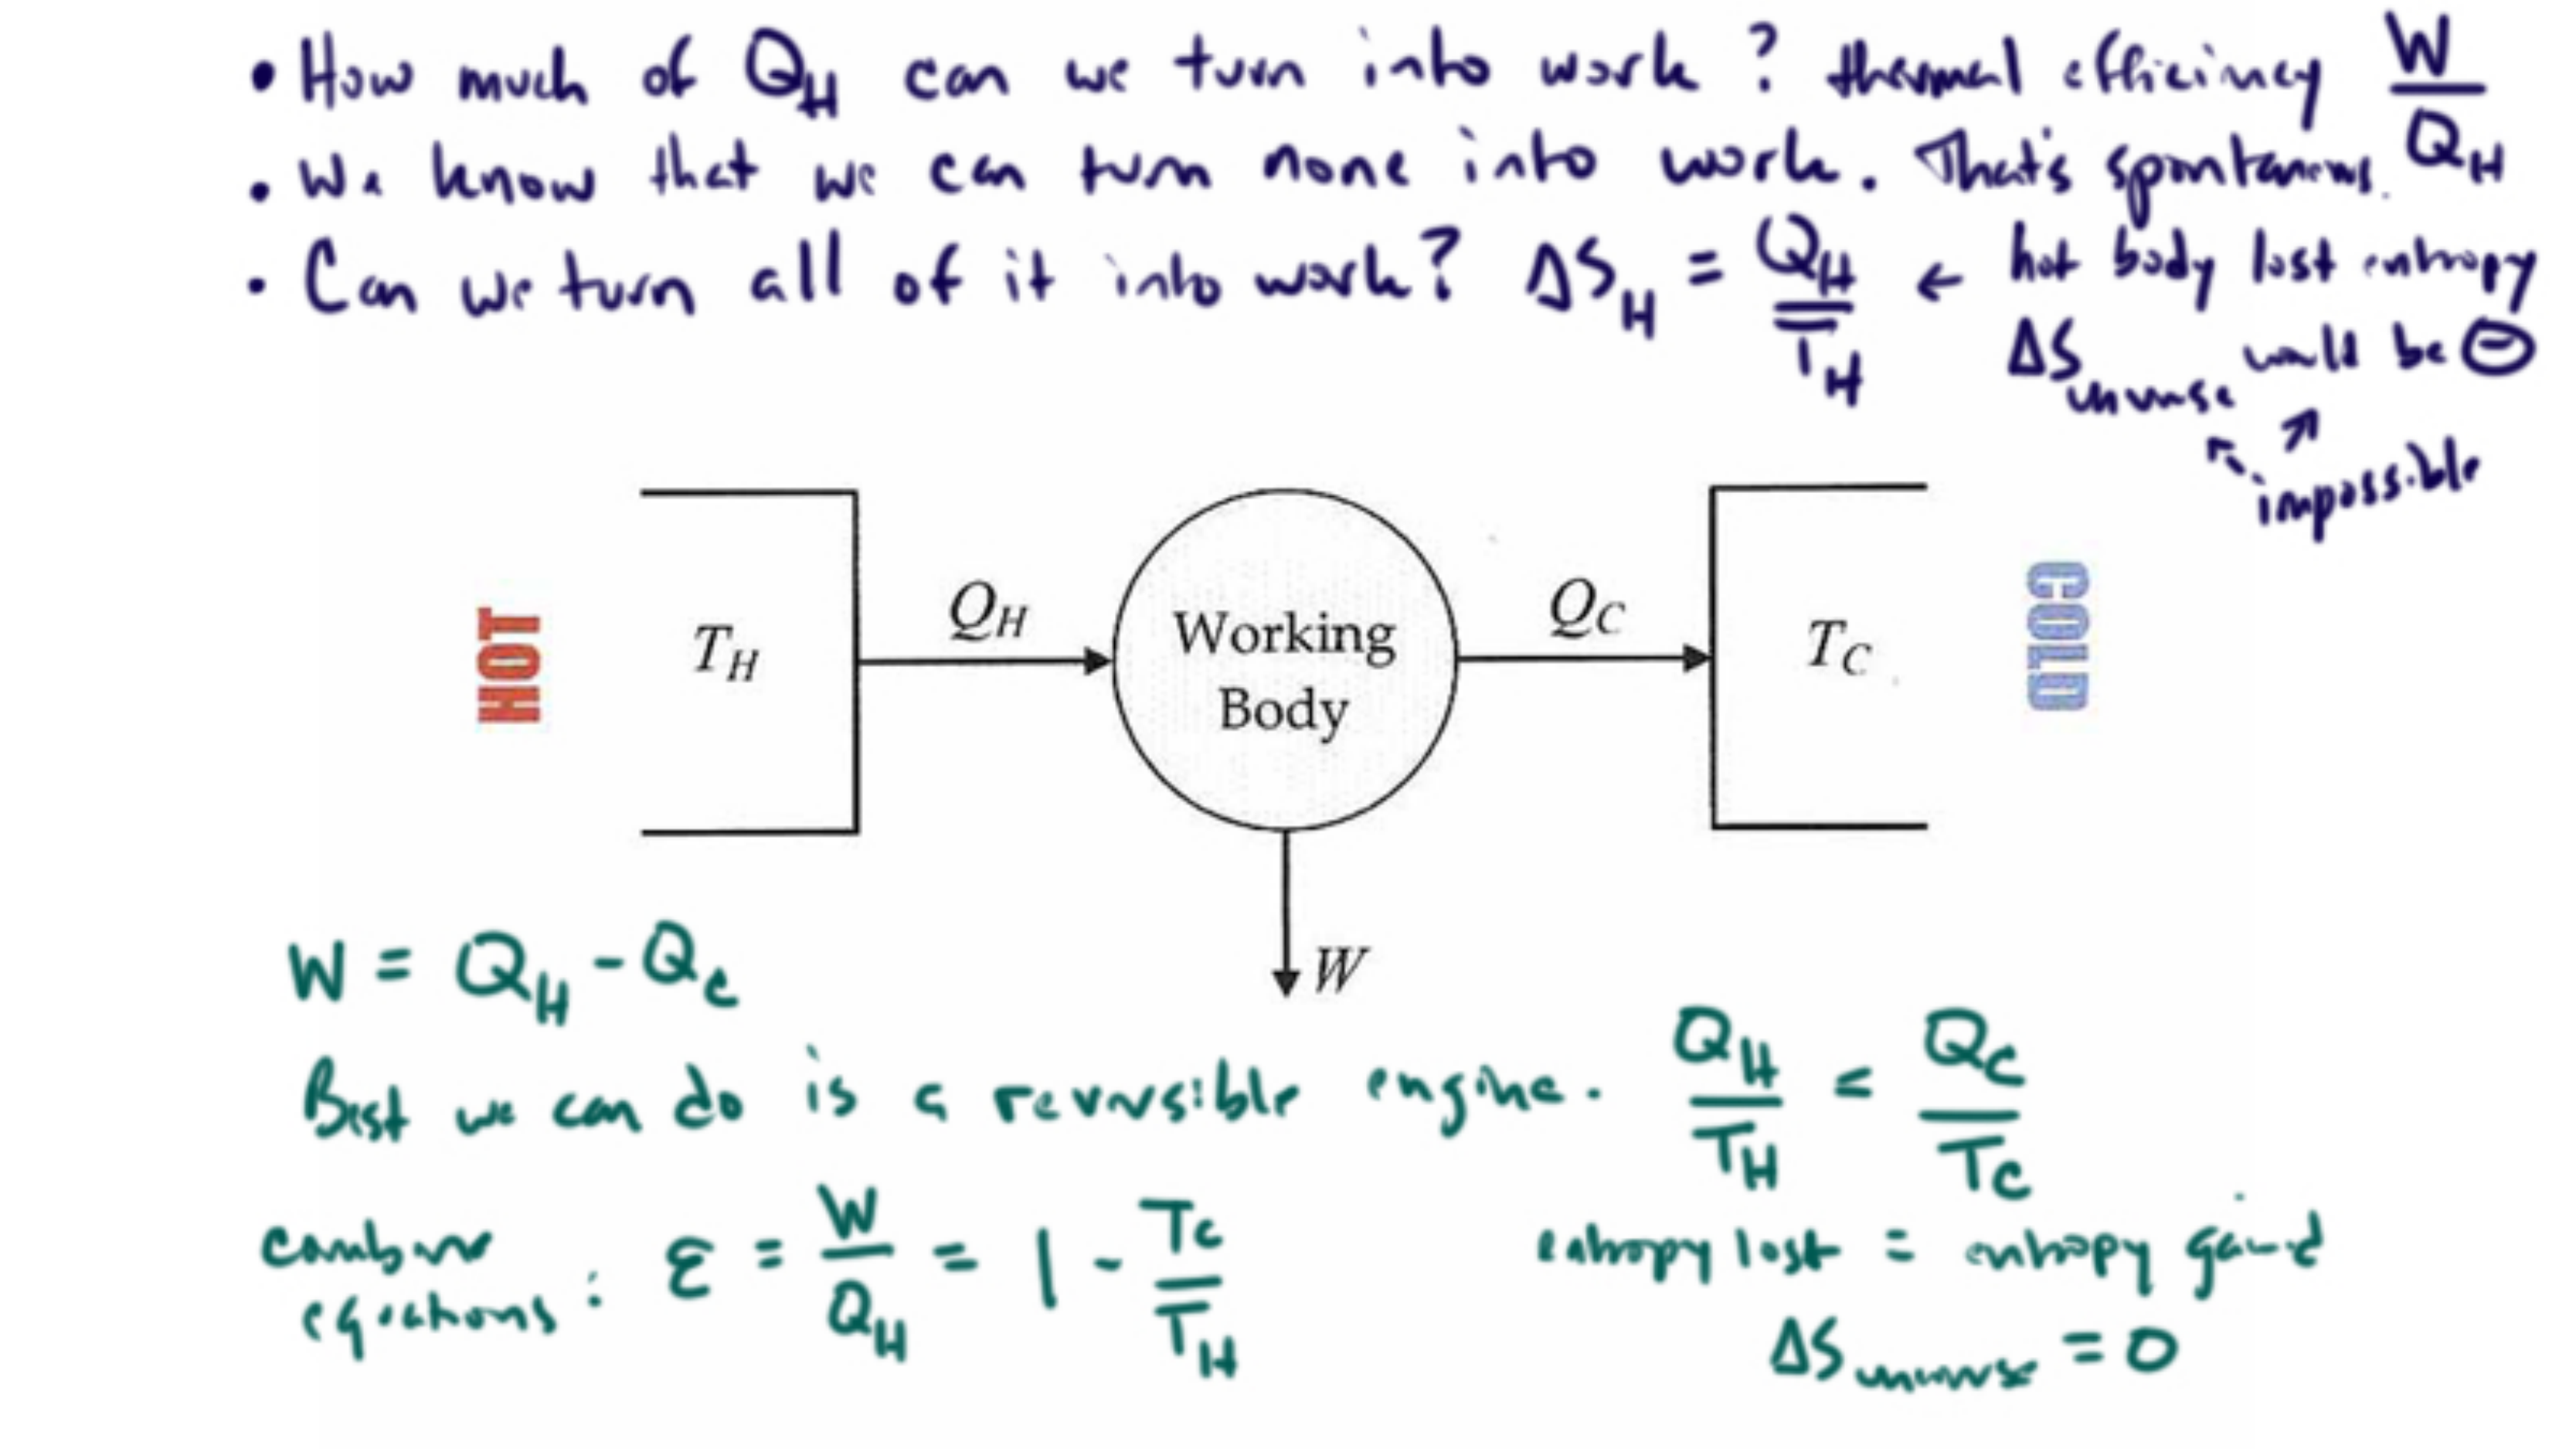 • How much of Q_H can we turn into work? thermal efficiency W/Q_H
• We know that we can turn none into work. That's spontaneous.
• Can we turn all of it into work? ΔS_H = Q_H/T_H ← hot body lost entropy
ΔS_universe would be ⊖
impossible
HOT
T_H
Q_H
Working
Body
Q_C
T_C
COLD
W
W = Q_H - Q_C
Best we can do is a reversible engine. Q_H/T_H = Q_C/T_C
combine
equations: ε = W/Q_H = 1 - T_C/T_H
entropy lost = entropy gained
ΔS_universe = 0